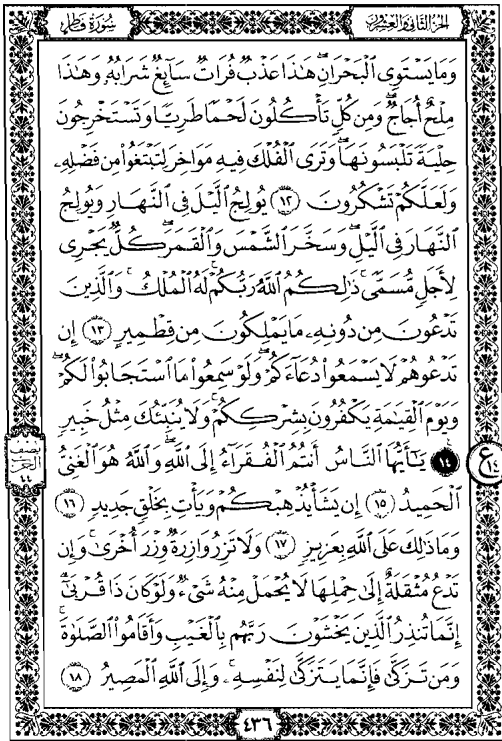 الجزء الثاني والعشرون
سورة فاطر
وَمَا يَسْتَوِى ٱلْبَحْرَانِ هَٰذَا عَذْبٌ فُرَاتٌ سَآئِغٌ شَرَابُهُۥ وَهَٰذَا
مِلْحٌ أُجَاجٌ ۖ وَمِن كُلٍّ تَأْكُلُونَ لَحْمًا طَرِيًّا وَتَسْتَخْرِجُونَ
حِلْيَةً تَلْبَسُونَهَا ۖ وَتَرَى ٱلْفُلْكَ فِيهِ مَوَاخِرَ لِتَبْتَغُوا۟ مِن فَضْلِهِۦ
وَلَعَلَّكُمْ تَشْكُرُونَ ١٢ يُولِجُ ٱلَّيْلَ فِى ٱلنَّهَارِ وَيُولِجُ
ٱلنَّهَارَ فِى ٱلَّيْلِ وَسَخَّرَ ٱلشَّمْسَ وَٱلْقَمَرَ كُلٌّ يَجْرِى
لِأَجَلٍ مُّسَمًّى ۚ ذَٰلِكُمُ ٱللَّهُ رَبُّكُمْ لَهُ ٱلْمُلْكُ ۚ وَٱلَّذِينَ
تَدْعُونَ مِن دُونِهِۦ مَا يَمْلِكُونَ مِن قِطْمِيرٍ ١٣ إِن
تَدْعُوهُمْ لَا يَسْمَعُوا۟ دُعَآءَكُمْ وَلَوْ سَمِعُوا۟ مَا ٱسْتَجَابُوا۟ لَكُمْ ۖ
وَيَوْمَ ٱلْقِيَٰمَةِ يَكْفُرُونَ بِشِرْكِكُمْ ۚ وَلَا يُنَبِّئُكَ مِثْلُ خَبِيرٍ
١٤ يَٰٓأَيُّهَا ٱلنَّاسُ أَنتُمُ ٱلْفُقَرَآءُ إِلَى ٱللَّهِ ۖ وَٱللَّهُ هُوَ ٱلْغَنِىُّ
ٱلْحَمِيدُ ١٥ إِن يَشَأْ يُذْهِبْكُمْ وَيَأْتِ بِخَلْقٍ جَدِيدٍ ١٦
وَمَا ذَٰلِكَ عَلَى ٱللَّهِ بِعَزِيزٍ ١٧ وَلَا تَزِرُ وَازِرَةٌ وِزْرَ أُخْرَىٰ ۚ وَإِن
تَدْعُ مُثْقَلَةٌ إِلَىٰ حِمْلِهَا لَا يُحْمَلْ مِنْهُ شَىْءٌ وَلَوْ كَانَ ذَا قُرْبَىٰٓ ۗ
إِنَّمَا تُنذِرُ ٱلَّذِينَ يَخْشَوْنَ رَبَّهُم بِٱلْغَيْبِ وَأَقَامُوا۟ ٱلصَّلَوٰةَ ۚ
وَمَن تَزَكَّىٰ فَإِنَّمَا يَتَزَكَّىٰ لِنَفْسِهِۦ ۚ وَإِلَى ٱللَّهِ ٱلْمَصِيرُ ١٨
نصف
الحزب
٤٤
ع
١٠
٤٣٦